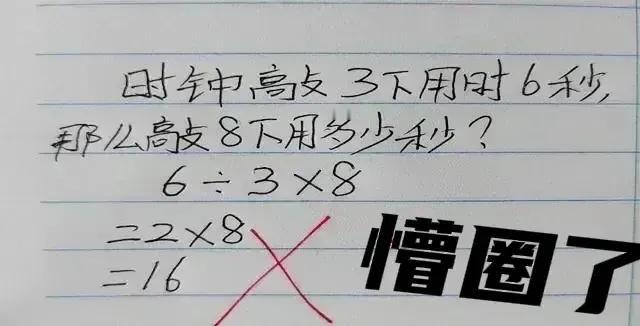 时钟高攴3下用时6秒,
那么高攴8下用多少秒?
6÷3×8
=2×8
=16
懵圈了